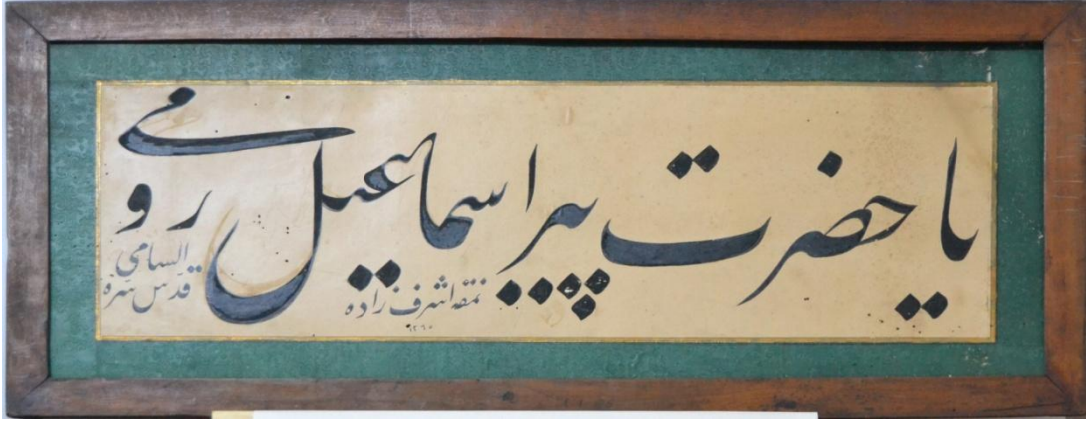 يا حضرت پير اسماعيل رومى
قدس سره السامى
نمقه اشرف زاده
١٢٦٠